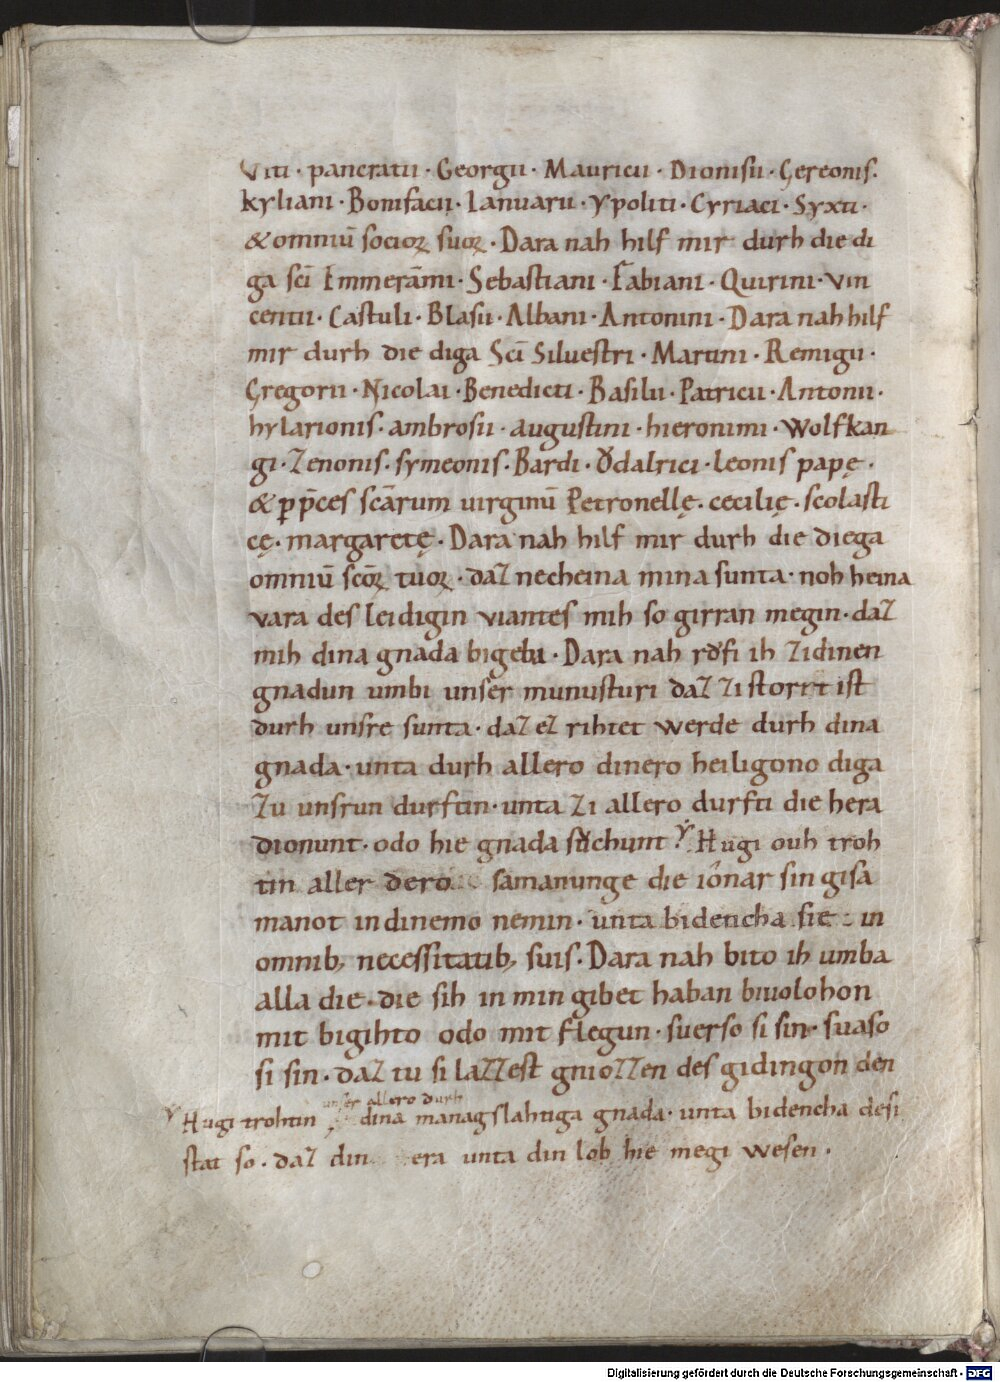 Viti · pancratii · Georgii · Mauricii · Dionisii · Gereonis.
kyliani · Bonifacii · Ianuarii · Ypoliti · Cyriaci · Syxti ·
& omniū socioꝝ suoꝝ · Dara nah hilf mir durh die di
ga sc̄i Emmerāmi · Sebastiani · Fabiani · Quirini · vin
centii · Castuli · Blasii · Albani · Antonini · Dara nah hilf
mir durh die diga Sc̄i Silvestri · Martini · Remigii ·
Gregorii · Nicolai · Benedicti · Basilii · Patricii · Antonii ·
hylarionis · ambrosii · augustini · hieronimi · Wolfkan
gi · Zenonis · symeonis · Bardi · Ǒdalrici · leonis papę ·
& ꝑ p̄ces sc̄arum virginū Petronellę · cecilię · scolasti
cę · margaretę · Dara nah hilf mir durh die diega
omniū sc̄oꝝ tuoꝝ · daz necheina mina sunta · noh heina
vara des leidigin viantes mih so girran megin · daz
mih dina gnada bigeba · Dara nah rǒfi ih zidinen
gnadun umbi unser munusturi daz zistorrt ist
durh unsre sunta · daz ez rihtet werde durh dina
gnada · unta durh allero dinero heiligono diga
zu unsrun durftin · unta zi allero durfti die hera
dionunt · odo hie gnada sůchunt Hugi ouh troh
tin aller dero samanunge die iônar sin gisa
manot in dinemo nemin · unta bidencha sie in
omnib; necessitatib; suis · Dara nah bito ih umba
alla die · die sih in min gibet haban bivolohon
mit bigihto odo mit flegun · suerso si sin · suaso
si sin · daz tu si lazzest gniozzen des gidingon den
unser allero durh
Hugi trohtin dina managslahtiga gnada · unta bidencha desi
stat so · daz din era unta din lob hie megi wesen ·
Digitalisierung gefördert durch die Deutsche Forschungsgemeinschaft - DFG